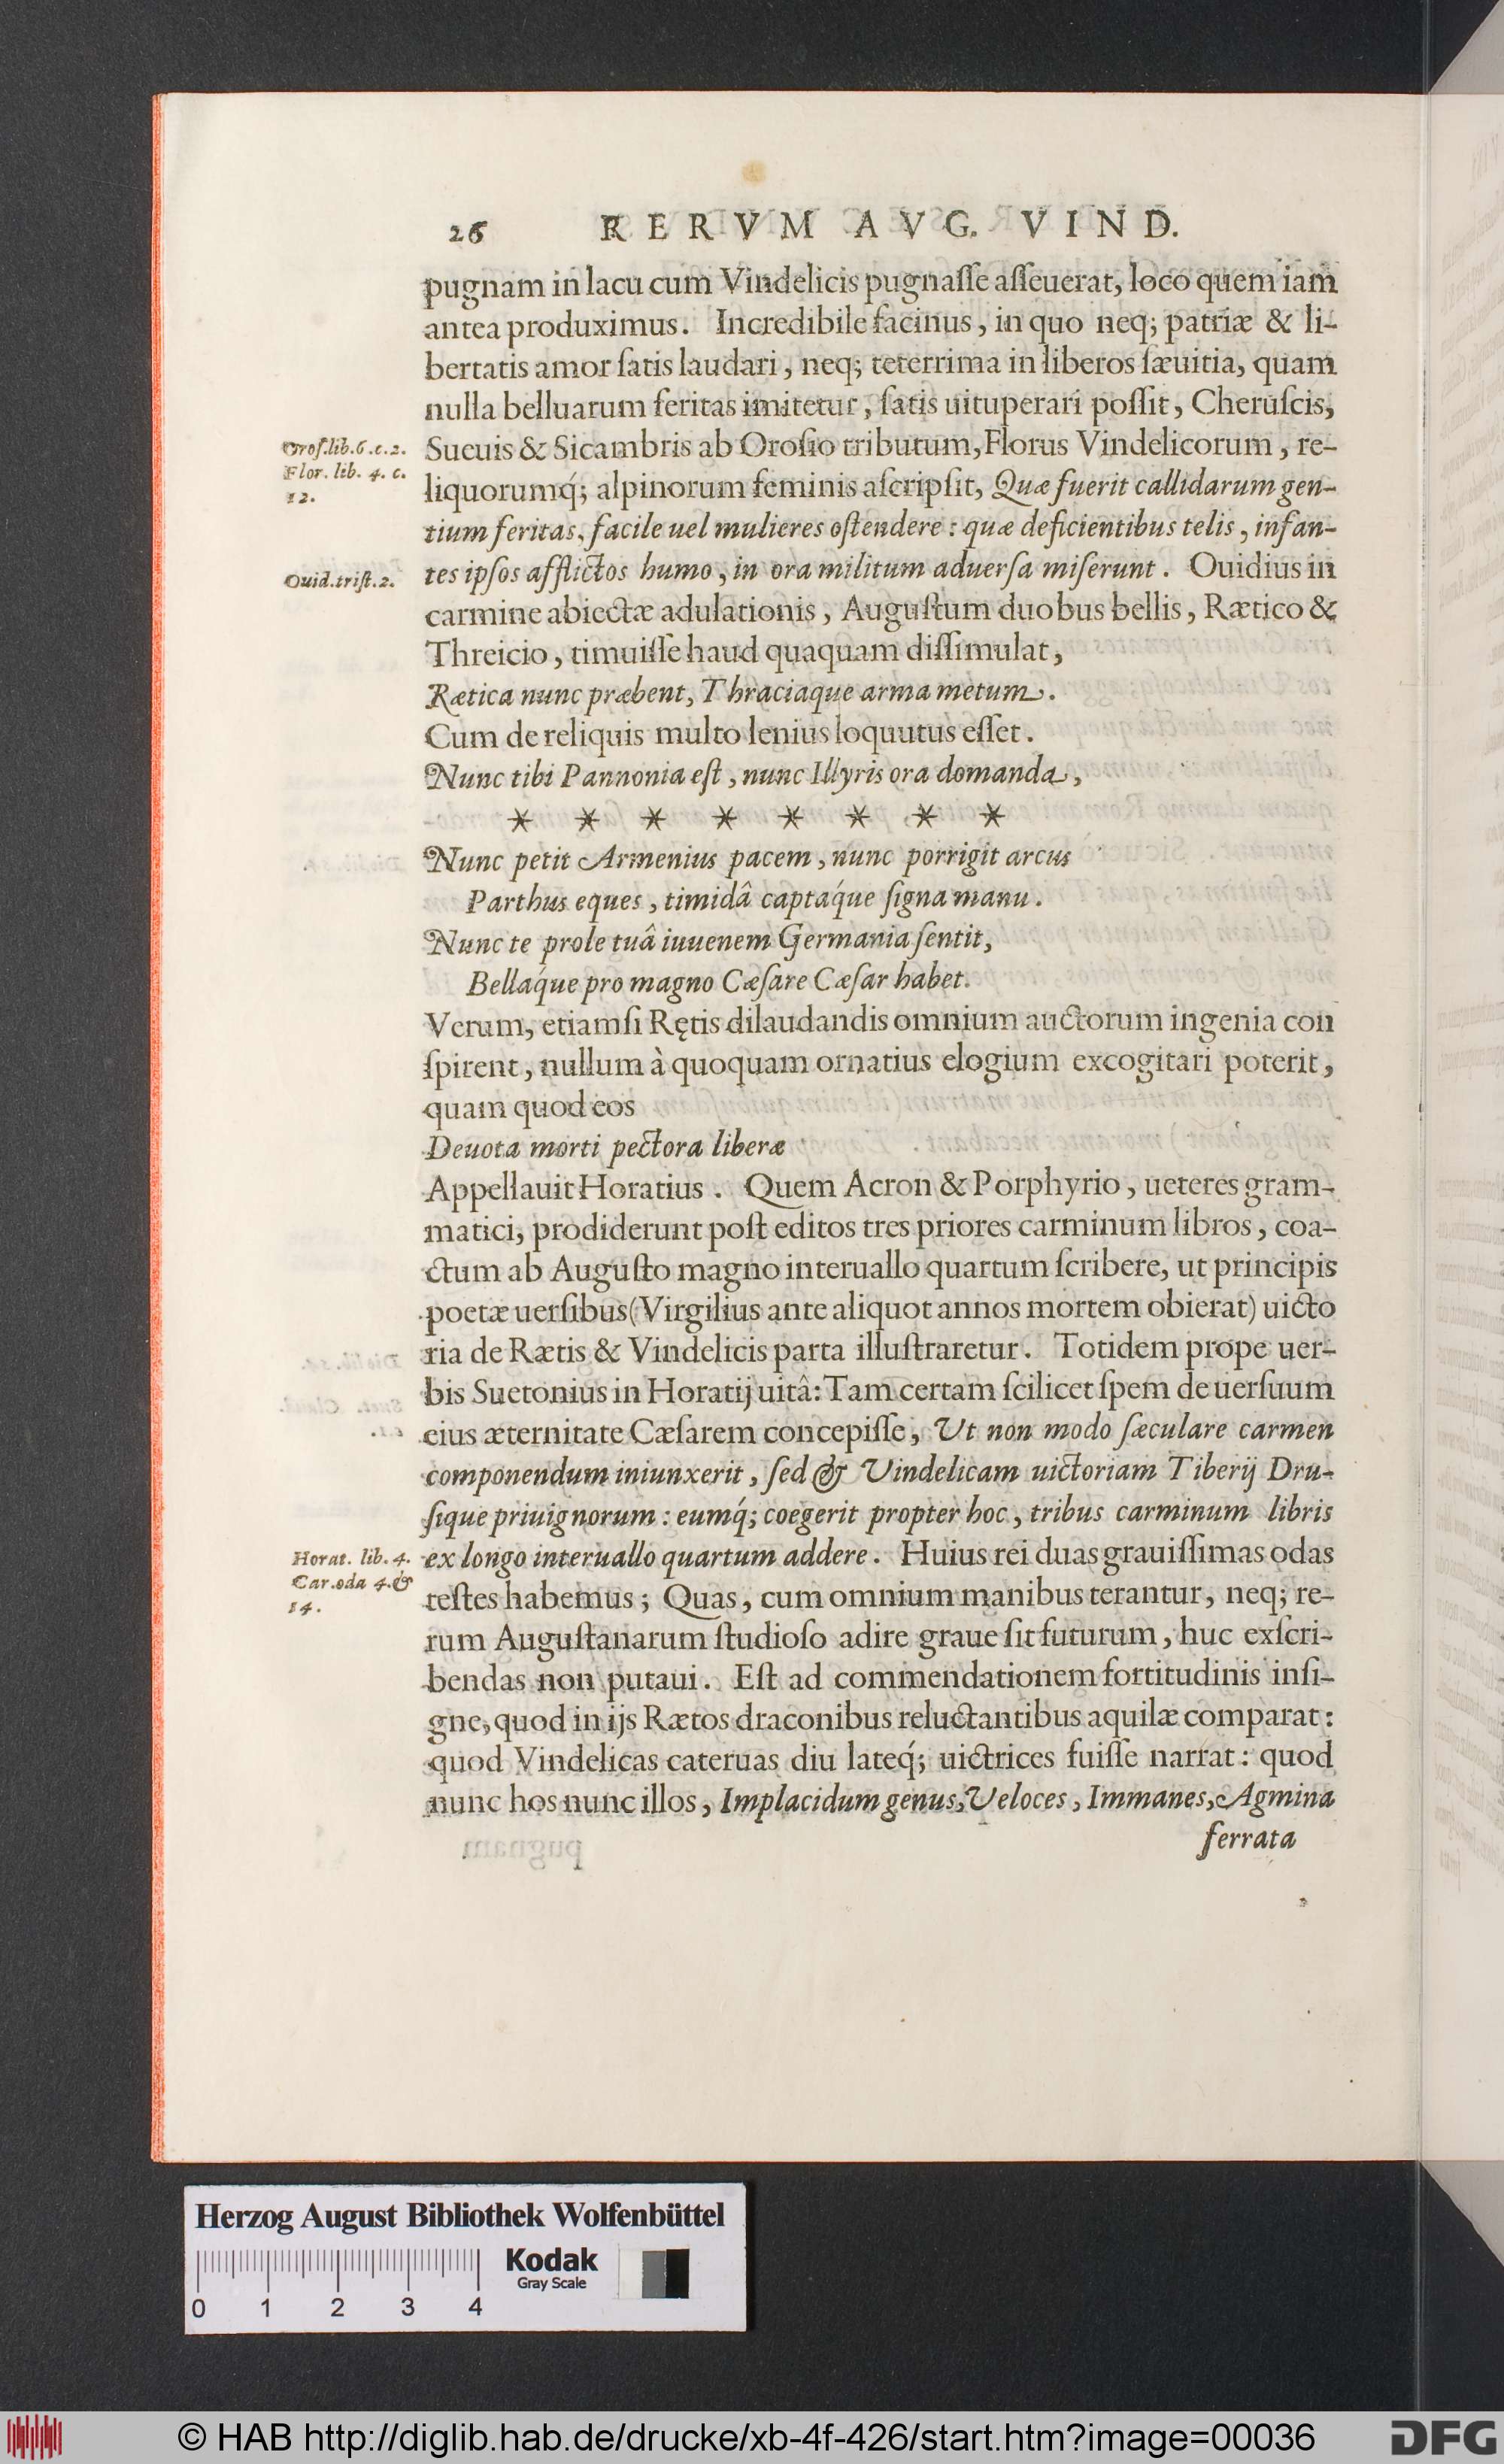 26 RERVM AVG. VIND.
pugnam in lacu cum Vindelicis pugnaſſe aſſeuerat, loco quem iam
antea produximus. Incredibile facinus, in quo neq; patriæ & li-
bertatis amor ſatis laudari, neq; teterrima in liberos ſæuitia, quam
nulla belluarum feritas imitetur, ſatis uituperari poſſit, Cheruſcis,
Oroſ.lib.6.c.2.
Sueuis & Sicambris ab Oroſio tributum, Florus Vindelicorum, re-
Flor. lib. 4. c.
12.
liquorumq́; alpinorum feminis aſcripſit, Quæ fuerit callidarum gen-
tium feritas, facile uel mulieres oſtendere: quæ deficientibus telis, infan-
Ouid.triſt.2.
tes ipſos afflictos humo, in ora militum aduerſa miſerunt. Ouidius in
carmine abiectæ adulationis, Auguſtum duobus bellis, Rætico &
Threicio, timuiſſe haud quaquam diſſimulat,
Rætica nunc præbent, Thraciaque arma metum.
Cum de reliquis multo lenius loquutus eſſet.
Nunc tibi Pannonia eſt, nunc Illyris ora domanda,
* * * * * * * *
Nunc petit Armenius pacem, nunc porrigit arcus
Parthus eques, timidâ captaq́ue ſigna manu.
Nunc te prole tuâ iuuenem Germania ſentit,
Bellaq́ue pro magno Cæſare Cæſar habet.
Verum, etiamſi Rętis dilaudandis omnium auctorum ingenia con
ſpirent, nullum à quoquam ornatius elogium excogitari poterit,
quam quod eos
Deuota morti pectora liberæ
Appellauit Horatius. Quem Acron & Porphyrio, ueteres gram-
matici, prodiderunt poſt editos tres priores carminum libros, coa-
ctum ab Auguſto magno interuallo quartum ſcribere, ut principis
poetæ uerſibus (Virgilius ante aliquot annos mortem obierat) uicto
ria de Rætis & Vindelicis parta illuſtraretur. Totidem prope uer-
bis Suetonius in Horatij uitâ: Tam certam ſcilicet ſpem de uerſuum
eius æternitate Cæſarem concepiſſe, Ut non modo ſæculare carmen
componendum iniunxerit, ſed & Vindelicam uictoriam Tiberij Dru-
ſique priuignorum: eumq́; coegerit propter hoc, tribus carminum libris
Horat. lib. 4.
Car.oda 4.&
14.
ex longo interuallo quartum addere. Huius rei duas grauiſſimas odas
teſtes habemus; Quas, cum omnium manibus terantur, neq; re-
rum Auguſtanarum ſtudioſo adire graue ſit futurum, huc exſcri-
bendas non putaui. Eſt ad commendationem fortitudinis inſi-
gne, quod in ijs Rætos draconibus reluctantibus aquilæ comparat:
quod Vindelicas cateruas diu lateq́; uictrices fuiſſe narrat: quod
nunc hos nunc illos, Implacidum genus, Veloces, Immanes, Agmina
ferrata
Herzog August Bibliothek Wolfenbüttel
Kodak
Gray Scale
0 1 2 3 4
© HAB http://diglib.hab.de/drucke/xb-4f-426/start.htm?image=00036
DFG